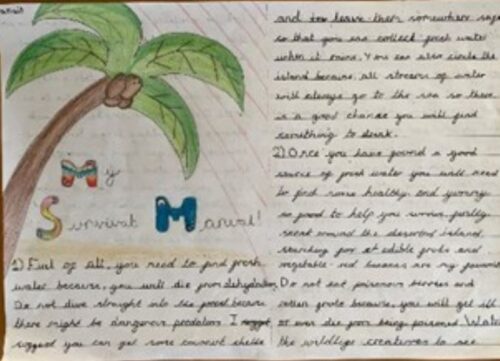 My
Survival Manual!
1) First of All, you need to find fresh
water because, you will die from dehydration
Do not dive straight into the pond because
there might be dangerous predators I
suggest you can get some coconut shells
and leave them somewhere safe
so that you can collect fresh water
when it rains. You can also circle the
island because all streams of water
will always go to the sea so there
is a good chance you will find
something to drink.
2) Once you have found a good
source of fresh water you will need
to find some healthy and yummy
food to help you survive partly
around the deserted island
searching for edible fruits and
vegetable - red bananas are my favourite
Do not eat poisonous berries and
rotten fruits because, you will get ill
or even die from being poisoned Watch
the wildlife creatures to see